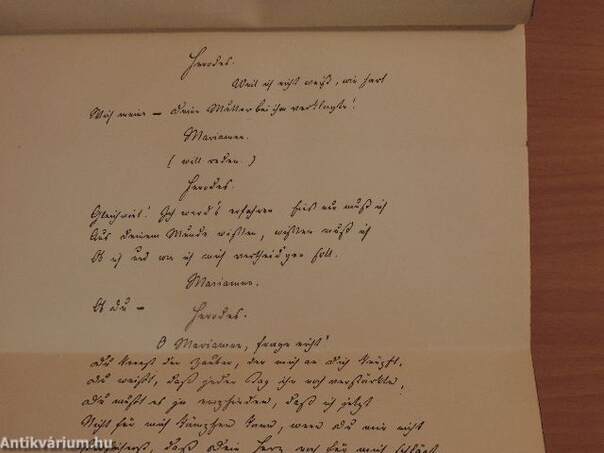 Herodes.
Weil ich nicht weiß, wie hart
Mich meine – deine Mutter bei ihm verklagte!
Mariamne.
(will reden.)
Herodes.
Gleichviel! Ich werd's erfahren muß ich
Aus deinem Munde wissen, wissen muß ich
Ob ich und wie ich mich vertheidigen soll.
Mariamne.
Ob du –
Herodes.
O Mariamne, frage nicht!
Du kennst den Zauber, der mich an dich knüpft,
Du weißt, daß jeder Tag ihn noch verstärkte,
Du mußt es ja empfinden, daß ich jetzt
Nicht für mich kämpfen kann, wenn du mir nicht
daß dein Herz noch für mich schlägt
Antikvárium.hu